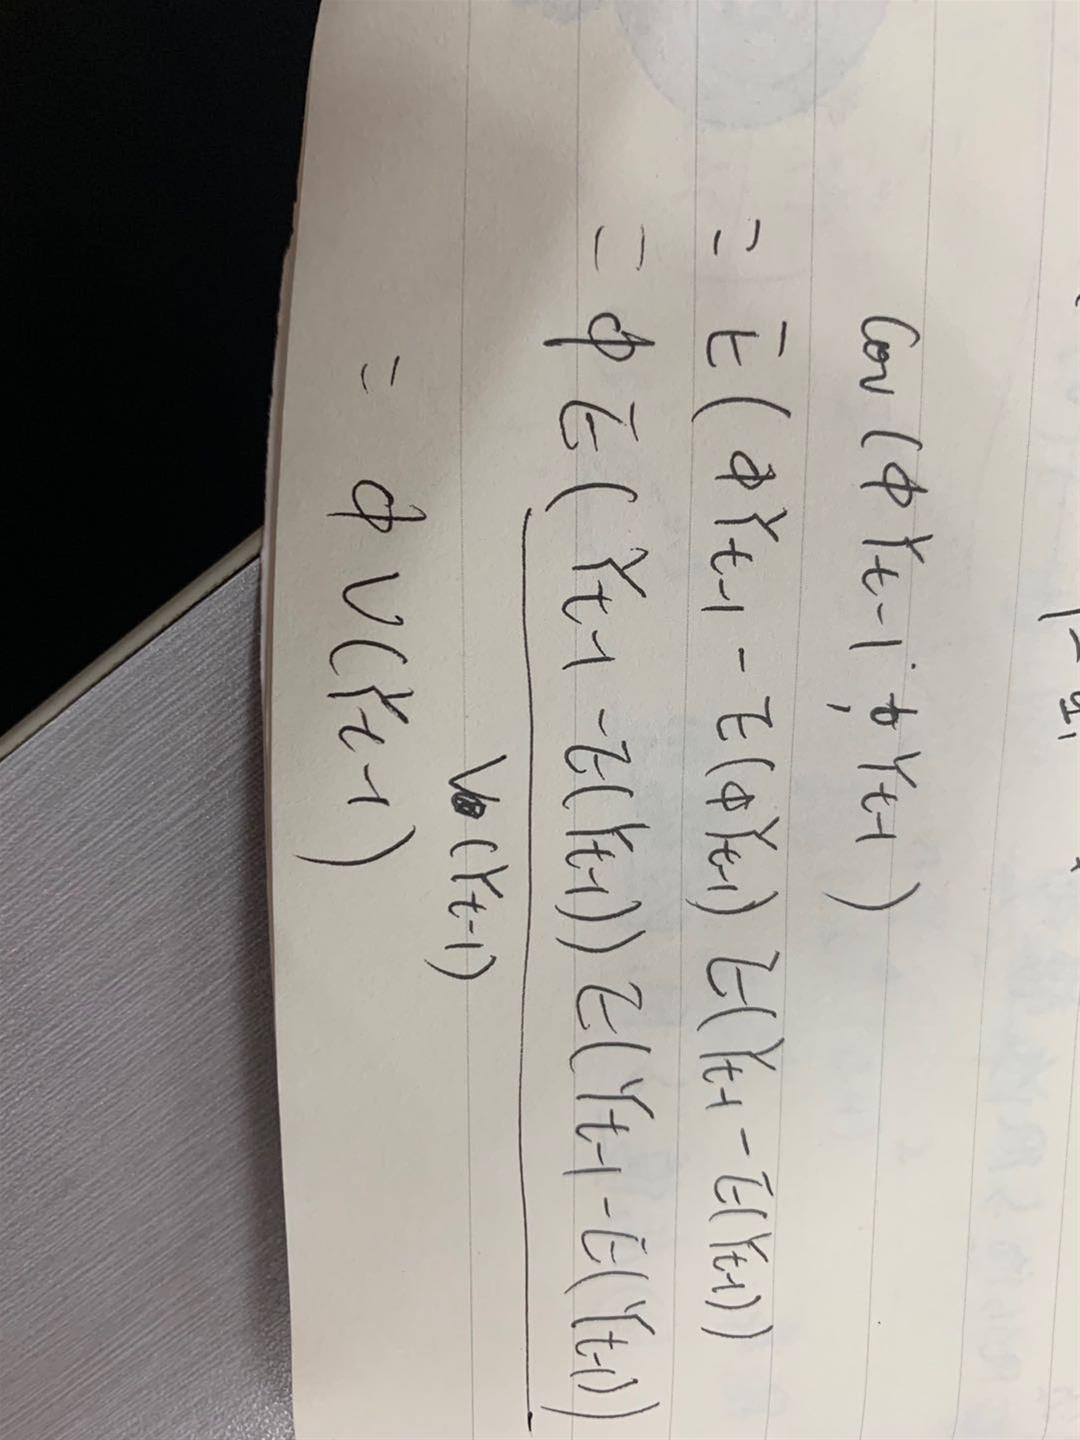 Cov(ϕYt-1, Yt-1)
= E(ϕYt-1 - E(ϕYt-1) E(Yt-1 - E(Yt-1))
= ϕ E(Yt-1 - E(Yt-1)) E(Yt-1 - E(Yt-1))
V(Yt-1)
= ϕ V(Yt-1)